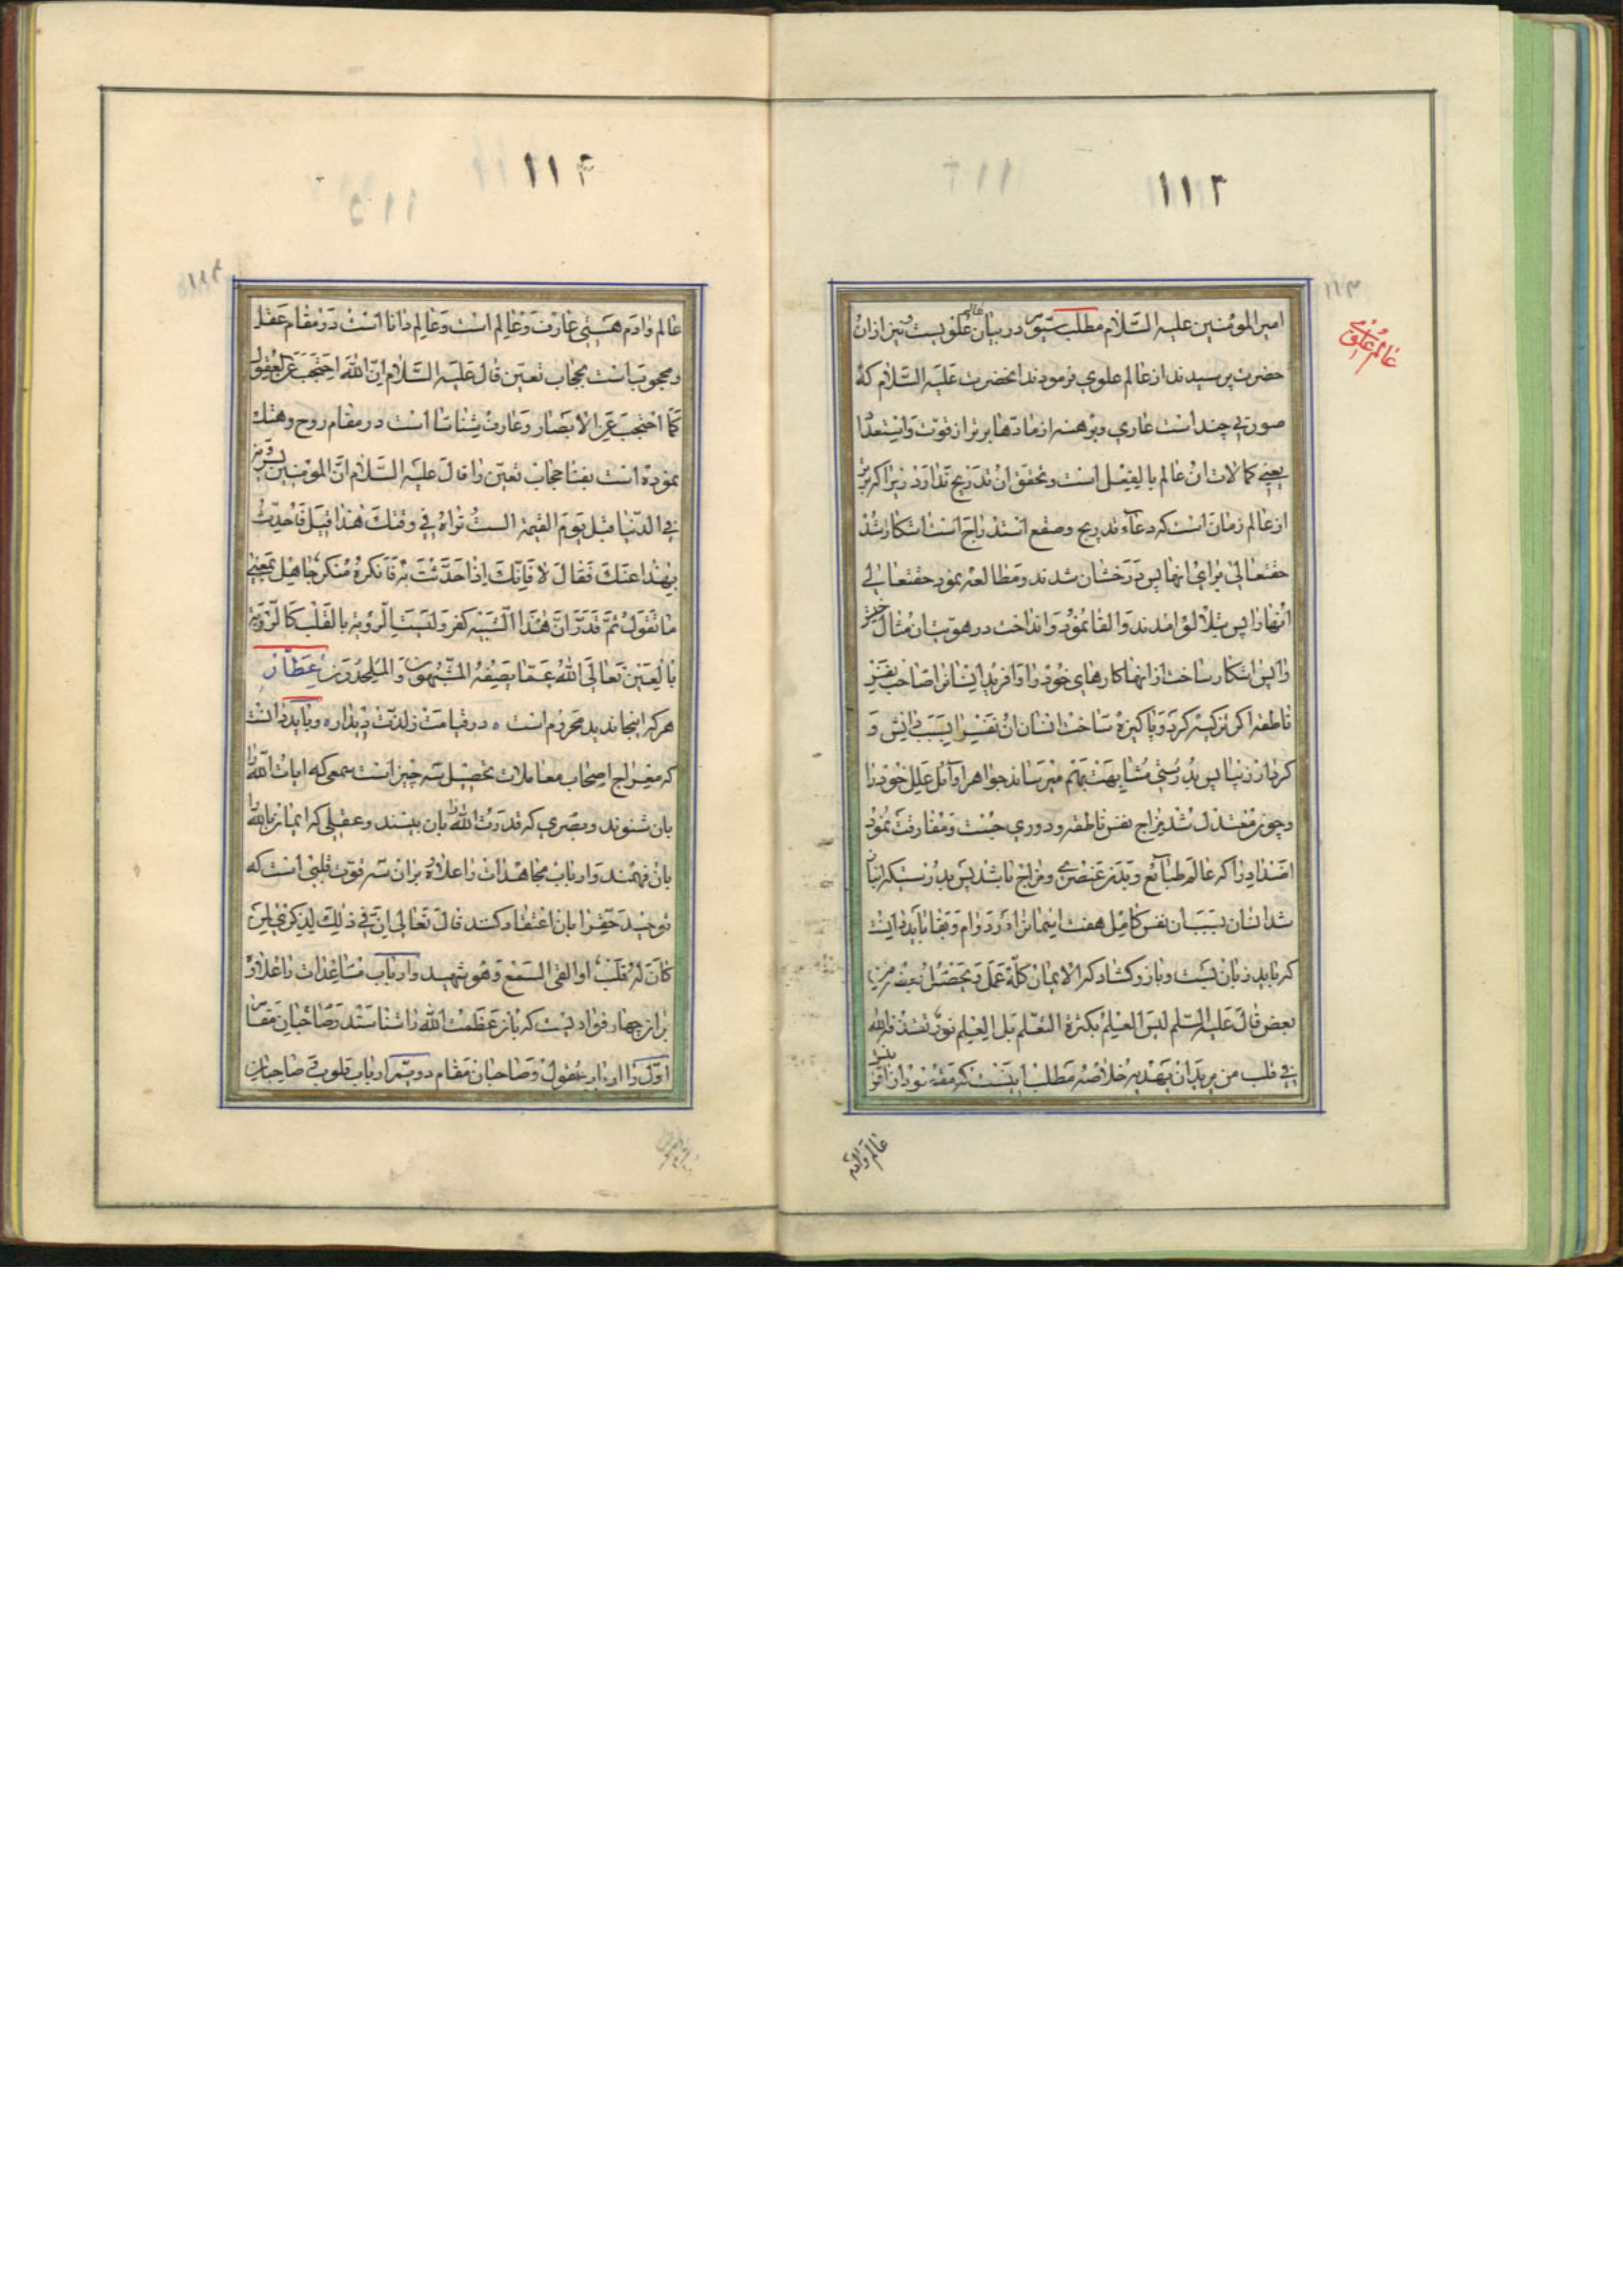 ۱۱۳
۱۱۳
عالم علوی
امیرالمومنین علیه السلام مطلب سیوم در بیان عالم علویست و نیز از ان
حضرت پرسیدند از عالم علوی فرمودند انحضرت علیه السلام که
صورتی چند است عاری و برهنه از مادها برتر از قوت و استعداد
یعنی کمالات ان عالم بالفعل است و تحقق ان تدریج ندارد زیرا که برتر
از عالم زمان است که دعاء تدریج و صقع استدراج است اشکار شد
حقتعالی برای انها پس درخشان شدند و مطالعه نمود حقتعالی
انها را پس بتلالؤ امدند و القا نمود و انداخت در هویتشان مثال خود
را پس اشکار ساخت از انها کارهای خود را و افرید انسانرا صاحب نفس
ناطقه اگر تزکیه کرد و پاکیزه ساخت انسان ان نفس را بسبب دانش و
کردار زیبا پس بدرستی مشابهت بهم میرساند جواهر اوائل علل خود را
و چون معتدل شد مزاج نفس ناطقه و دوری جست و مفارقت نمود
اضداد را که عالم طبائع و بدن عنصری و مزاج باشد پس بدرستیکه انباز
شد انسان بسبب ان نفس کامل هفت اسمانرا در دوام و بقا باید دانست
که باید زبان بست و بازو کشاد که الایمان کله عمل و یحصل بعضه من
بعض قال علیه السلم لیس العلم بکثرة التعلم بل العلم نور یقذفه الله
فی قلب من یرید ان یهدیه خلاصه مطلب اینست که مقه نور از افق
عالم و ادم
۱۱۴
۱۱۴
عالم و ادم هستی عارف و عالم است و عالم دانا است در مقام عقل
و محجوبست بحجاب تعین قال علیه السلام ان الله احتجب عن العقول
کما احتجب عن الابصار و عارف شناسا است در مقام روح و هتک
نموده است بفنا حجاب تعین را قال علیه السلام ان المومنین یرونه
فی الدنیا قبل یوم القیمة الست تراه فی وقتک هذا قیل فاحدث
بهذا عنک فقال لا فانک اذا حدثت به فانکره منکر جاهل بمعنی
ما تقول ثم قدر ان هذا تشبیه کفر و لیست الرویة بالقلب کالرویة
بالعین تعالی الله عما یصفه المشبهون و الملحدون عطار
هر که اینجا ندید محروم است ه در قیامت ز لذت دیدار ه و باید دانست
که معراج اصحاب معاملات تحصیل سه چیز است سمعی که ایات الله را
بان شنوند و بصری که قدرت الله را بان بینند و عقلی که ایمان بالله را
بان فهمند و ارباب مجاهدات را علاوه بران سه قوت قلبی است که
توحید حقرا بان اعتقاد کنند قال تعالی ان فی ذلک لذکری لمن
کان له قلب او القی السمع و هو شهید و ارباب مشاهدات را علاوه
بر ان چهار فوادیست که بان عظمت الله را شناسند و صاحبان مقام
اول را ارباب عقول و صاحبان مقام دویم را ارباب قلوب و صاحبان